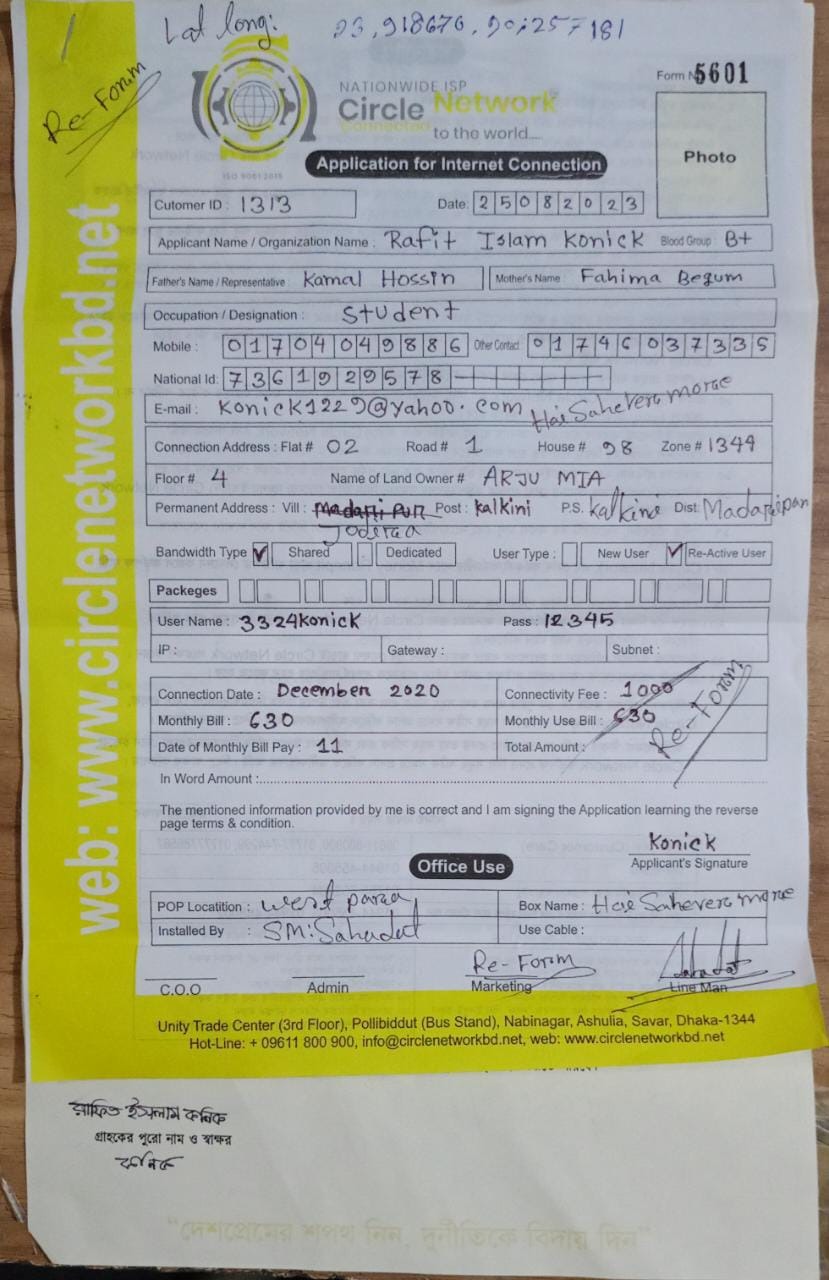 Lat long: 23,918676, 90,257181
Re-Form
NATIONWIDE ISP
Form No 5601
Circle Network
Connected to the world....
Photo
Application for Internet Connection
ISO 9001:2015
Cutomer ID : 1313 Date: 25082023
Applicant Name / Organization Name : Rafit Islam Konick Blood Group B+
Father's Name / Representative Kamal Hossin Mother's Name Fahima Begum
Occupation / Designation : Student
Mobile : 01704049886 Other Contact 01746037335
National Id: 7361929578
E-mail : Konick1229@yahoo.com Hai Sahevera morae
Connection Address : Flat # 02 Road # 1 House # 98 Zone # 1344
Floor # 4 Name of Land Owner # ARJU MIA
Permanent Address : Vill : Madari Pur Post : Kalkini P.S. Kalkini Dist.
Bandwidth Type Shared Dedicated User Type : New User Re-Active User
Packeges
User Name : 3324Konick Pass : 12345
IP : Gateway : Subnet :
Connection Date : December 2020 Connectivity Fee : 1000
Monthly Bill : 630 Monthly Use Bill : 630
Date of Monthly Bill Pay : 11 Total Amount : Re-Form
In Word Amount :
The mentioned information provided by me is correct and I am signing the Application learning the reverse
page terms & condition.
Konick
Applicant's Signature
Office Use
POP Locatition : West para Box Name : Hai Sahevera morae
Installed By : SM: Sahadat Use Cable :
Re-Form Sahadat
C.O.O Admin Marketing Line Man
Unity Trade Center (3rd Floor), Pollibiddut (Bus Stand), Nabinagar, Ashulia, Savar, Dhaka-1344
Hot-Line: + 09611 800 900, info@circlenetworkbd.net, web: www.circlenetworkbd.net
web: www.circlenetworkbd.net
রাফিত ইসলাম কনিক
গ্রাহকের পুরো নাম ও স্বাক্ষর
কনিক
"দেশপ্রেমের শপথ নিন, দুর্নীতিকে বিদায় দিন"